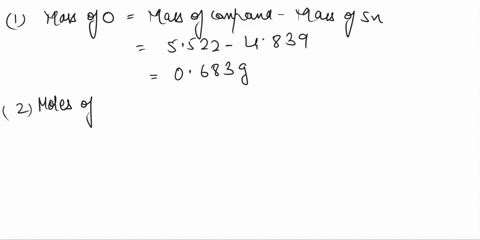 (1) Mass of O = Mass of compound - Mass of Sn
= 5.522 - 4.839
= 0.683g
(2) Moles of